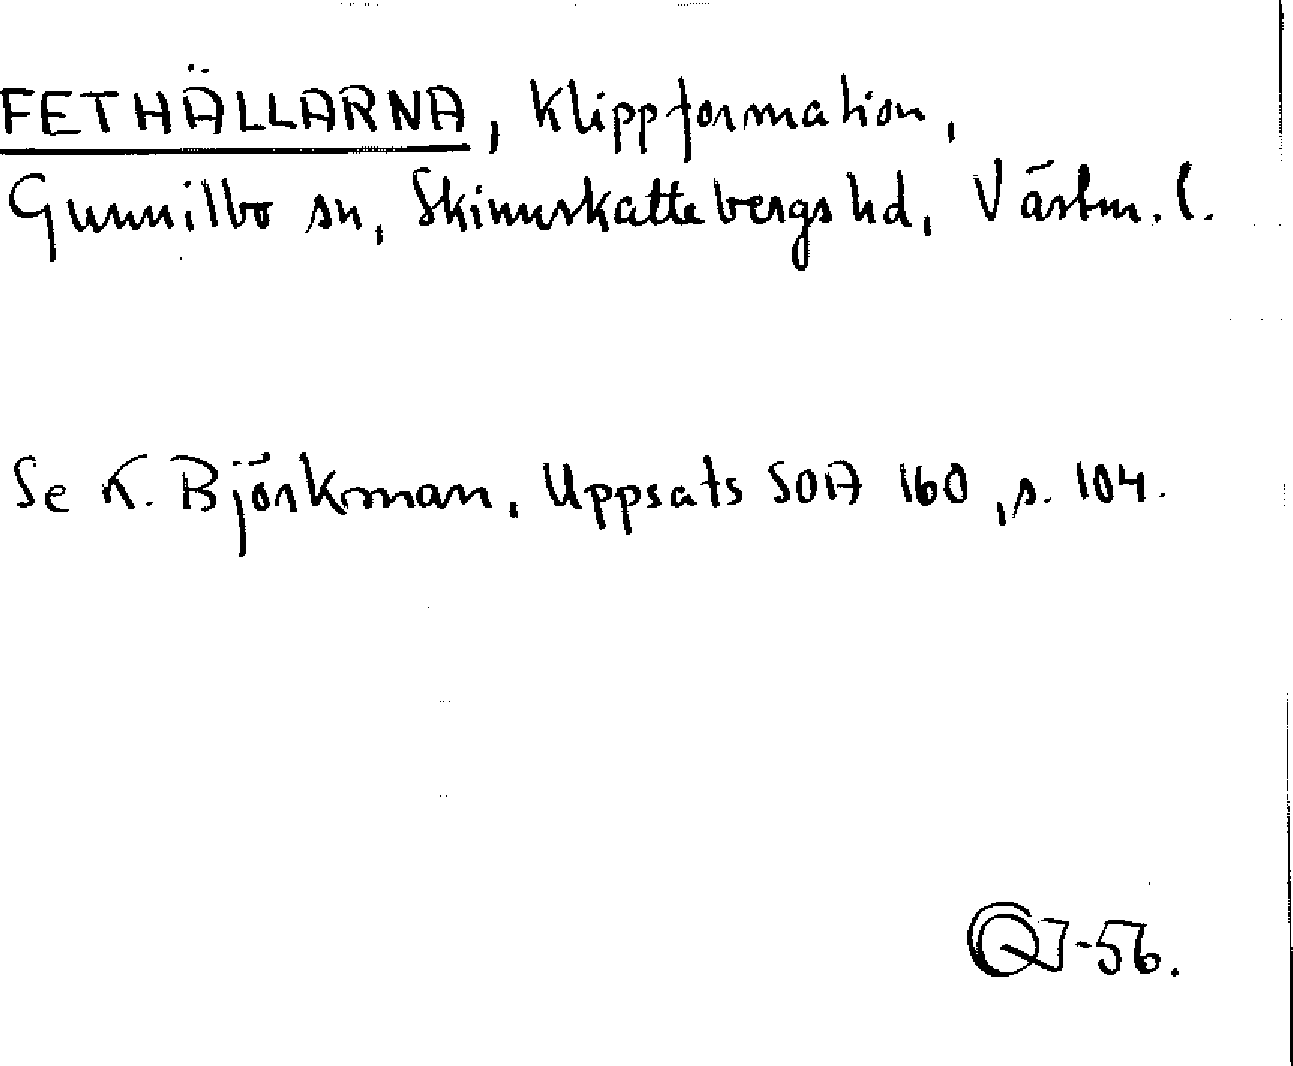 FETHÄLLARNA, Klippformation,
Gunnilbo sn, Skinnskattebergs hd, Västm. l.
Se K. Björkman, Uppsats SOA 160, s. 104.
-56.